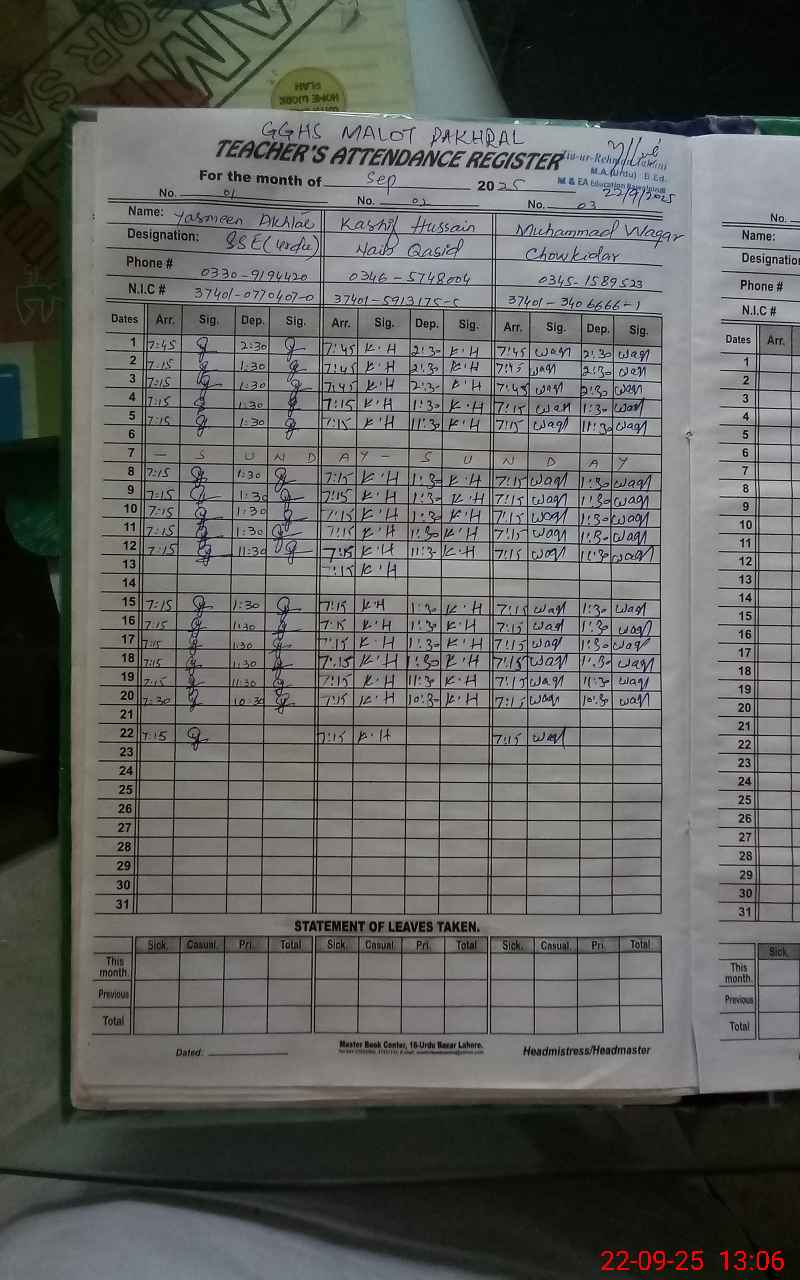 GGHS MALOT PAKHRAL
TEACHER'S ATTENDANCE REGISTER
Zia-ur-Rehman
M.A. (Urdu) B.Ed.
M & EA Education Rawalpindi
22/9/2025
For the month of Sep 2025
No. 01 No. 02 No. 03
Name: Yasmeen Akhtar Kashif Hussain Muhammad Waqar
Designation: SSE(urdu) Naib Qasid Chowkidar
Phone # 0330-9194420 0346-5748004 0345-1589523
N.I.C # 37401-0770407-0 37401-5913175-5 37401-3406666-1
Dates Arr. Sig. Dep. Sig. Arr. Sig. Dep. Sig. Arr. Sig. Dep. Sig.
1 7:45 2:30 7:45 K.H 2:30 K.H 7:45 waqr 2:30 waqr
2 7:15 1:30 7:45 K.H 2:30 K.H 7:45 waqr 2:30 waqr
3 7:15 1:30 7:45 K.H 2:30 K.H 7:45 waqr 2:30 waqr
4 7:15 1:30 7:15 K.H 1:30 K.H 7:15 waqr 1:30 waqr
5 7:15 1:30 7:15 K.H 11:30 K.H 7:15 waqr 11:30 waqr
6
7 — S U N D A Y — S U N D A Y
8 7:15 1:30 7:15 K.H 1:30 K.H 7:15 waqr 1:30 waqr
9 7:15 1:30 7:15 K.H 1:30 K.H 7:15 waqr 1:30 waqr
10 7:15 1:30 7:15 K.H 1:30 K.H 7:15 waqr 1:30 waqr
11 7:15 1:30 7:15 K.H 1:30 K.H 7:15 waqr 1:30 waqr
12 7:15 11:30 7:15 K.H 11:30 K.H 7:15 waqr 11:30 waqr
13 7:15 K.H
14
15 7:15 1:30 7:15 K.H 1:30 K.H 7:15 waqr 1:30 waqr
16 7:15 1:30 7:15 K.H 1:30 K.H 7:15 waqr 1:30 waqr
17 7:15 1:30 7:15 K.H 1:30 K.H 7:15 waqr 1:30 waqr
18 7:15 1:30 7:15 K.H 1:30 K.H 7:15 waqr 1:30 waqr
19 7:15 11:30 7:15 K.H 11:30 K.H 7:15 waqr 11:30 waqr
20 7:30 10:30 7:15 K.H 10:30 K.H 7:15 waqr 10:30 waqr
21
22 7:15 7:15 K.H 7:15 waqr
23
24
25
26
27
28
29
30
31
STATEMENT OF LEAVES TAKEN.
Sick. Casual. Pri. Total Sick. Casual Pri. Total Sick. Casual. Pri. Total
This month.
Previous
Total
Dated:
Master Book Center, 16-Urdu Bazar Lahore.
Headmistress/Headmaster
No.
Name:
Designation
Phone #
N.I.C #
Dates Arr.
1
2
3
4
5
6
7
8
9
10
11
12
13
14
15
16
17
18
19
20
21
22
23
24
25
26
27
28
29
30
31
Sick.
This month.
Previous
Total
HOME WORK
PLAN
FOR SAL
22-09-25 13:06